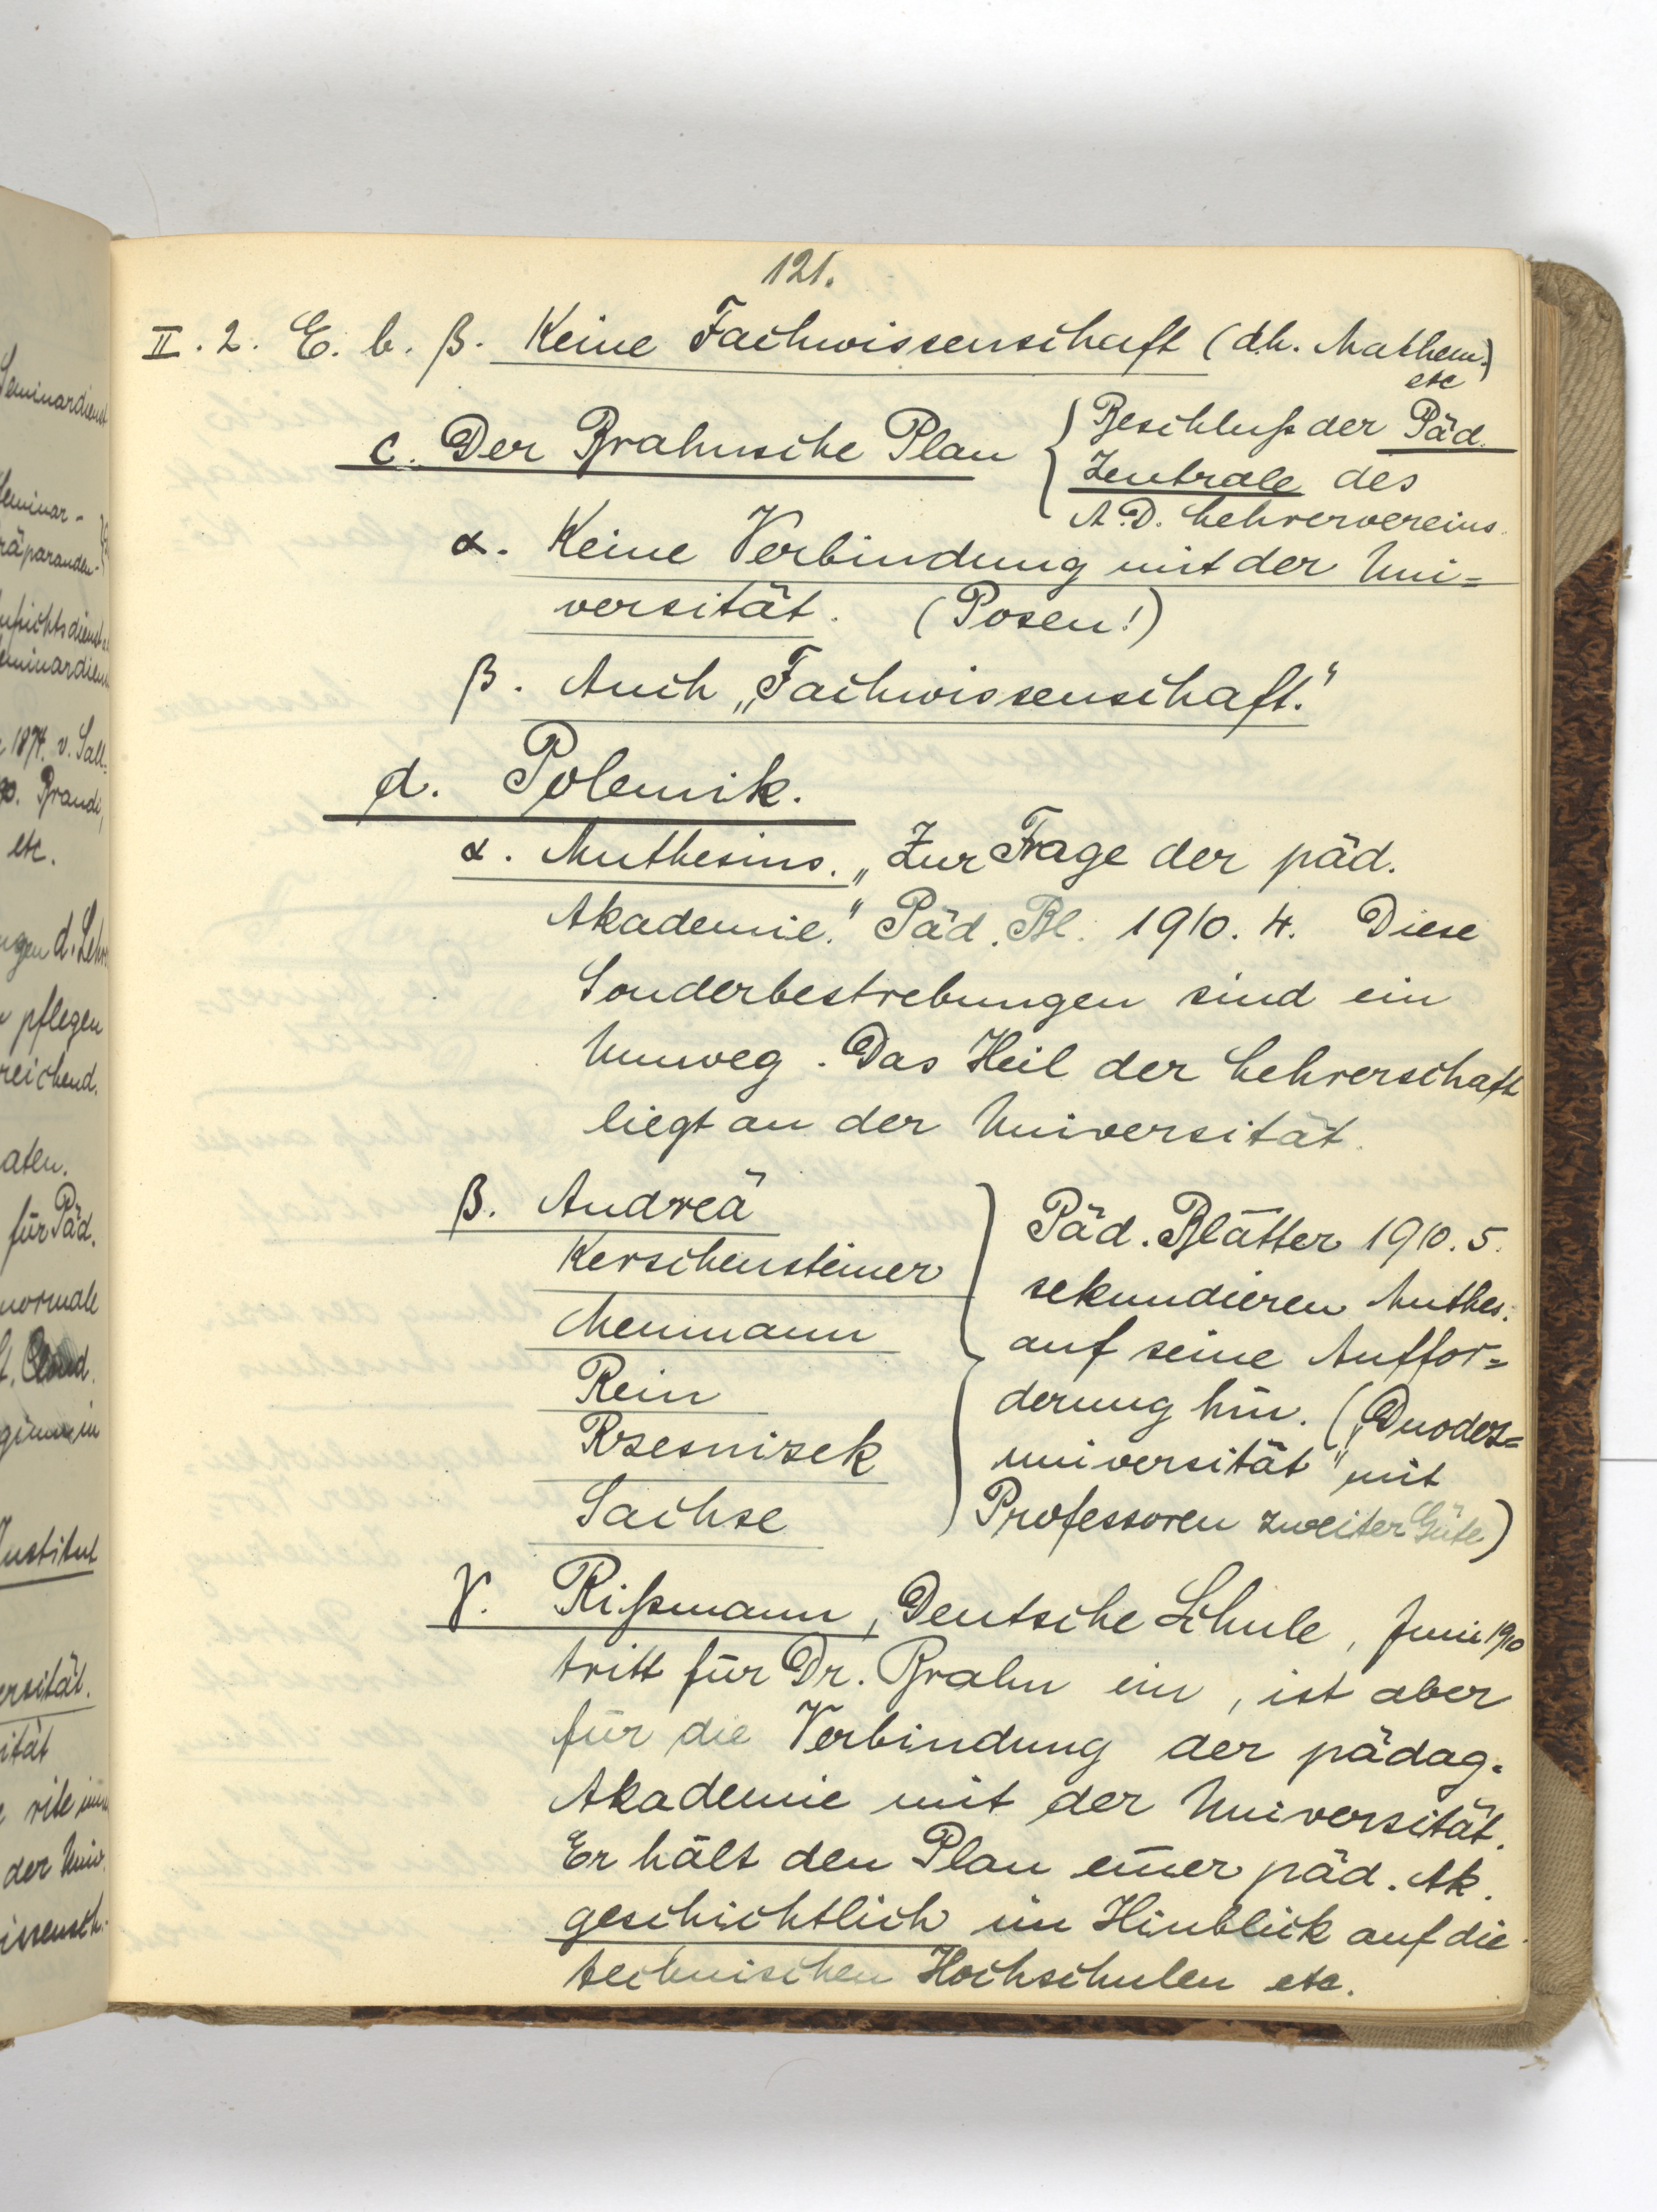 121.
II. 2. E. b. β. Keine Fachwissenschaft (d.h. Mathem.)
etc
c. Der Brahnsche Plan
Beschluß der Päd.
Zentrale des
A.D. Lehrervereins.
α. Keine Verbindung mit der Uni=
versität. (Posen!)
β. Auch „Fachwissenschaft."
d. Polemik.
α. Muthesius. „Zur Frage der päd.
Akademie." Päd. Bl. 1910. 4. Diese
Sonderbestrebungen sind ein
Umweg. Das Heil der Lehrerschaft
liegt an der Universität.
β. Andreä
Kerschensteiner
Meumann
Rein
Rzesnizek
Sachse
Päd. Blätter 1910. 5.
sekundieren Muthes.
auf seine Auffor=
derung hin. („Duodez=
universität" mit
Professoren zweiter Güte)
γ. Rißmann, Deutsche Schule, Juni 1910
tritt für Dr. Brahn ein, ist aber
für die Verbindung der pädag.
Akademie mit der Universität.
Er hält den Plan einer päd. Ak.
geschichtlich im Hinblick auf die
technischen Hochschulen etc.
Seminardienst
Seminar-
räparanden-
Seminardien
1874. v. Sall-
p. Brandi,
etc.
gen d. Lehr
pflegen
reichend.
aten.
für Päd.
normale
Institut
ersität.
ität
rite
der Univ.
issensch.